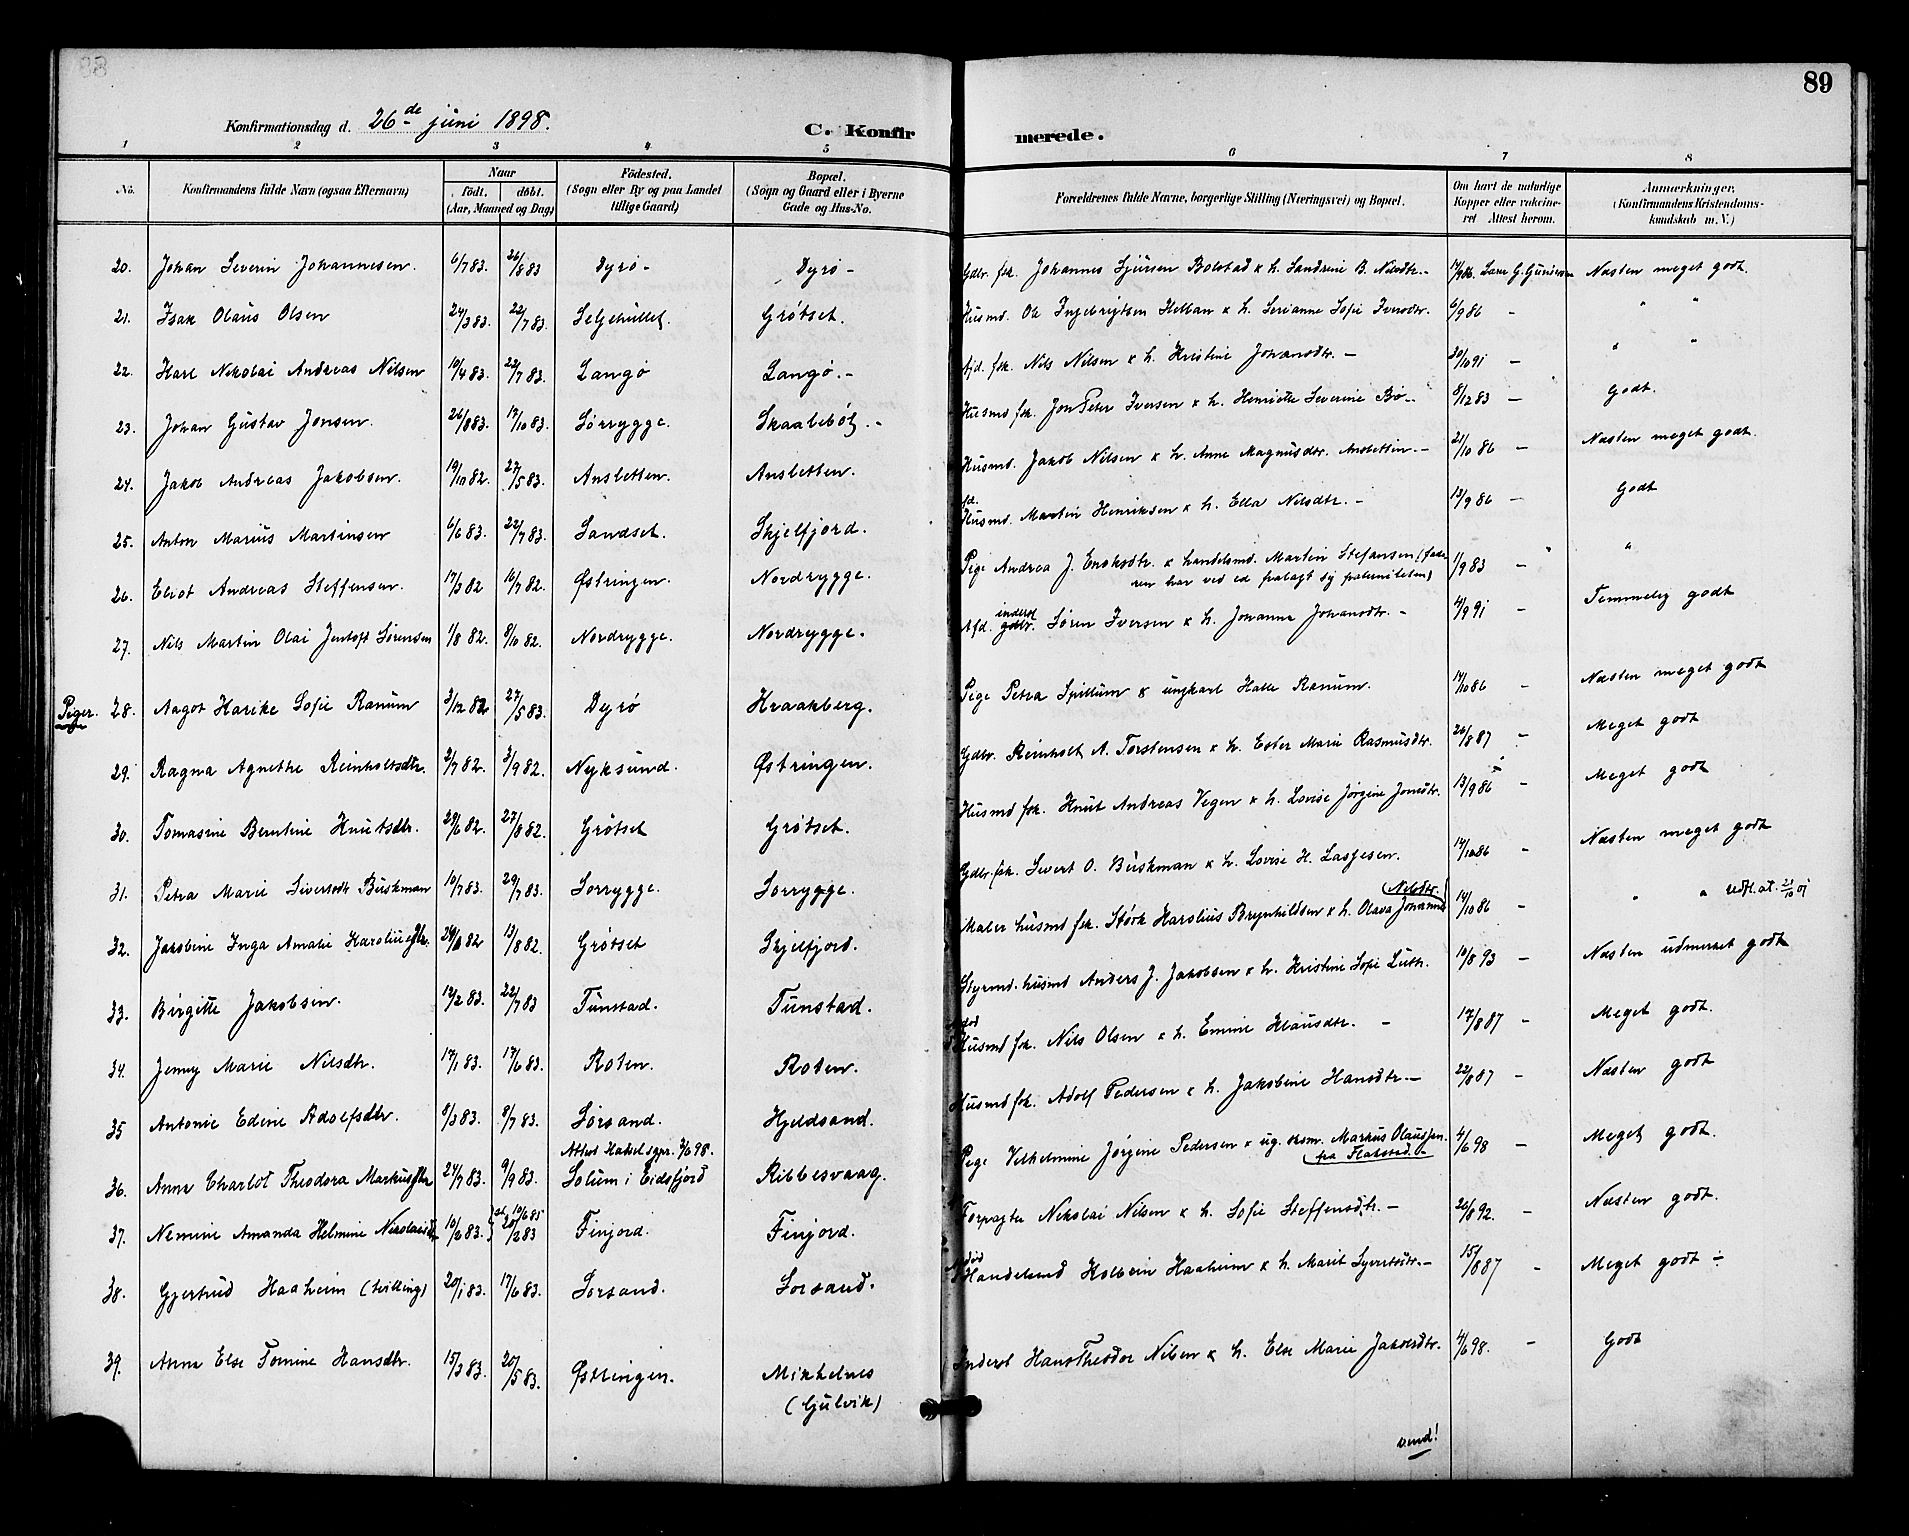 88
89
Konfirmationsdag d. 26de juni 1898.
C. Konfirmerede.
1 2 3 4 5 6 7 8
No.
Konfirmandens fulde Navn (ogsaa Efternavn)
Naar
født. døbt.
(Aar, Maaned og Dag)
Fødested.
(Sogn eller By og paa Landet
tillige Gaard)
Bopæl.
(Sogn og Gaard eller i Byerne
Gade og Hus-No.
Forældrenes fulde Navne, borgerlige Stilling (Næringsvei) og Bopæl.
Om havt de naturlige
Kopper eller vakcine-
ret Attest herom.
Anmærkninger.
(Konfirmandens Kristendoms-
kundskab m. V.)
20. Johan Severin Johannesen. 6/7 83. 26/8 83 Dyrø - Dyrø - Gdbr. fsk. Johannes Sjursen Bolstad & h. Sandrine B. Nilsdtr. - 17/9 86. Lars G. Gundersen Næsten meget godt.
21. Isak Olaus Olsen 24/3 83. 22/7 83. Seljehullet. Grøtset. Husmd. Ole Ingebrigtsen Hellan & h. Serianne Sofie Iversdtr. 6/9 86 - " "
22. Karl Nikolai Andreas Nilsen 19/4 83. 22/7 83. Langø Langø. - fsk. Nils Nilsen & h. Kristine Johansdtr. - 20/10 91 - " "
23. Johan Gustav Jonsen. 26/8 83. 17/10 83. Sørrygge. Skaalebøl. - Husmd fsk. Jon Peter Iversen & h. Henriette Severine Bø -. 8/12 83 - Godt.
24. Jakob Andreas Jakobsen. 19/10 82. 27/5 83. Ansletten. Ansletten. Husmd. Jakob Nilsen & h. Anne Magnusdtr. Ansletten. - 21/10 86 - Næsten meget godt.
25. Anton Marius Martinsen 6/6 83. 22/7 83. Sandset. Skjelfjord. fd. Husmd. Martin Henriksen & h. Ella Nilsdtr. - 13/9 86 - Godt
26. Eliot Andreas Steffensen. 17/3 82 16/7 82. Østringen. Nordrygge. Pige Andrea J. Enoksdtr. & handelsmd. Martin Stefansen (fade-
ren har ved ed fralagt sig paterniteten) 11/9 83 - "
27. Nils Martin Olai Jentoft Sørensen 1/8 82. 8/10 82. Nordrygge. Nordrygge. Afd. inderst gdbr. Søren Iversen & h. Johanna Johansdtr. - 4/9 91 - Temmelig godt
Piger. 28. Aagot Harike Sofie Ranum 3/12 82 27/5 83. Dyrø Kraakberg. Pige Petra Spillum & ungkarl Halle Ranum. 17/10 86 - Næsten meget godt
29. Ragna Agnethe Reinholtsdtr. 2/7 82. 3/9 82. Nyksund. Østringen. Gdbr. Reinholt A. Torstensen & h. Ester Marie Rasmusdtr. 26/8 87 - Meget godt
30. Tomasine Berntine Knutsdtr. 29/6 82. 27/8 82. Grøtset Grøtset. Husmd fsk. Knut Andreas Vegen & h. Lovise Jørgine Jonsdtr. 13/9 86 - Meget godt
31. Petra Marie Sivertsdtr Buskman 10/7 83. 29/7 83. Sørrygge. Sorrygge. Gdbr. fsk. Sivert O. Buskman & h. Lovise H. Lassesen. 14/10 86 - Næsten meget godt
32. Jakobine Inga Amalie Karoliusdtr. 82 13/8 82. Grøtset Skjelfjord. Maler husmd fsk. Størk Karolius Brynhildsen & h. Olava Johanna (Nilsdtr.) 14/10 86 - " " udfl. at. 21/10 01
33. Birgitte Jakobsen. 12/2 83. 22/7 83 Tunstad. Tunstad. Styrmd. husmd Anders J. Jakobsen & h. Kristine Sofie Luth. 10/8 93 - Næsten udmerket godt
34. Jenny Marie Nilsdtr. 17/1 83. 17/6 83. Roten. Roten. Husmd fsk. Nils Olsen & h. Emine Klausdtr. - 17/8 87 - Meget godt.
35 Antonie Edine Adolfsdtr. 8/3 83. 8/7 83. Sørsand. Hjeldsand. Husmd fsk. Adolf Pedersen & h. Jakobine Hansdtr. - 22/8 87 - Næsten godt
Attest Hadsel sgpr. 98.
36. Anna Charlot Theodora Markusdtr 24/7 83. 9/9 83. Solum i Eidsfjord Ribbesvaag. Pige Vilhelmine Jørgine Pedersen & ug. Markus Olaussen.
fra Flakstad. - 4/6 98 - Meget godt.
37. Nemine Amanda Helmine Nikolaisdtr 10/2 83. 83 Finjord. Finjord. Forpagter Nikolai Nilsen & h. Sofie Steffensdtr. - 26/8 92. - Næsten godt.
38. Gjertrud Haaheim (tvilling) 20/1 83. 17/6 83. Sørsand. Sorsand. død Handelsmd Kolbein Haaheim & h. Marit Syvertsdtr. - 15/8 87 - Meget godt ÷
39. Anna Else Tomine Hansdtr. 15/3 83. 20/5 83. Østringen. Mikkelnes
(Gjulvik) Inderst Hans Theodor Nilsen & h. Else Marie Jakobsdtr. 4/6 98. - Godt
vend!